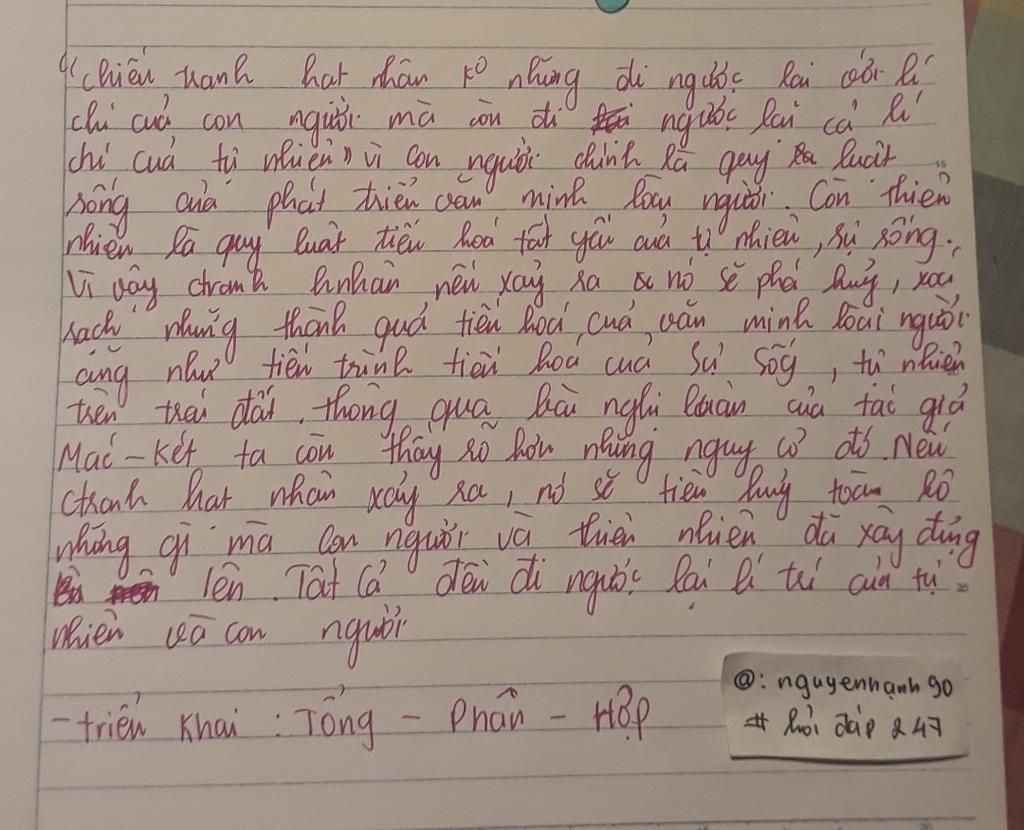 "chiến tranh hạt nhân ko những đi ngược lại với lí
chí cuả con người mà còn đi ngược lại cả lí
chí cuả tự nhiên" vì con người chính là quy luật
sống của phát triển văn minh loài người. Còn thiên
nhiên là quy luật tiến hoá tất yếu của tự nhiên, sự sống.
Vì vậy ctranh hnhân nếu xảy ra nó sẽ phá huỷ, xoá
sạch những thành quả tiến hoá cuả văn minh loài người
cũng như tiến trình tiến hoá cuả sự sốg, tự nhiên
trên trái đất. thông qua bài nghị luận của tác giả
Mác-két ta còn thấy rõ hơn những nguy cơ đó. Nếu
ctranh hạt nhân xảy ra, nó sẽ tiêu huỷ toàn bộ
những gì mà con người và thiên nhiên đã xây dựng
lên. Tất cả đều đi ngược lại lí trí của tự
nhiên và con người
- triển khai : Tổng - Phân - Hợp
@: nguyenhạnh90
# hỏi đáp 247